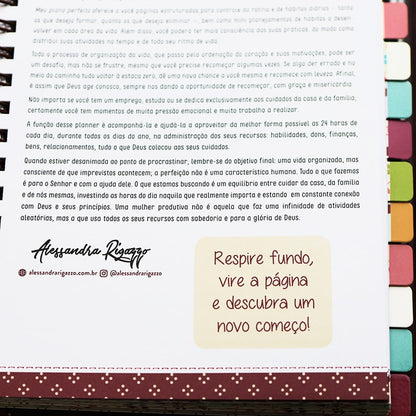 Meu plano perfeito oferece a você páginas estruturadas para controle da rotina e de hábitos diários – tanto
os que deseja formar, quanto os que deseja eliminar –, bem como mini planejamentos de hábitos a desen-
volver em cada área da vida. Além disso, você poderá ter mais consciência das suas práticas, do modo como
distribui suas atividades no tempo e de todo seu ritmo de vida.
Todo o processo de organização da vida, que passa pela ordenação do coração e suas motivações, pode ser
um desafio, mas não se frustre, mesmo que você precise recomeçar algumas vezes. Se algo der errado e no
meio do caminho tudo voltar à estaca zero, dê uma nova chance a você mesma e recomece com leveza. Afinal,
é assim que Deus age conosco, sempre nos dando a oportunidade de recomeçar, com graça e misericórdia.
Não importa se você tem um emprego, estuda ou se dedica exclusivamente aos cuidados da casa e da família,
certamente você tem momentos de muita pressão emocional e muito trabalho a realizar.
A função desse planner é acompanhá-la e ajudá-la a aproveitar da melhor forma possível as 24 horas de
cada dia, durante todos os dias do ano, na administração dos seus recursos: habilidades, dons, finanças,
bens, relacionamentos, tudo o que Deus colocou aos seus cuidados.
Quando estiver desanimada ao ponto de procrastinar, lembre-se do objetivo final: uma vida organizada, mas
consciente de que imprevistos acontecem; a perfeição não é uma característica humana. Tudo o que fazemos
é para o Senhor e com a ajuda dele. O que estamos buscando é um equilíbrio entre cuidar da casa, da família
e de nós mesmas, investindo as horas do dia naquilo que realmente importa e estando em constante conexão
com Deus e seus princípios. Uma mulher produtiva não é aquela que faz uma infinidade de atividades
aleatórias, mas a que usa todos os seus recursos com sabedoria e para a glória de Deus.
Alessandra Rigazzo
alessandrarigazzo.com.br @alessandrarigazzo
Respire fundo,
vire a página
e descubra um
novo começo!